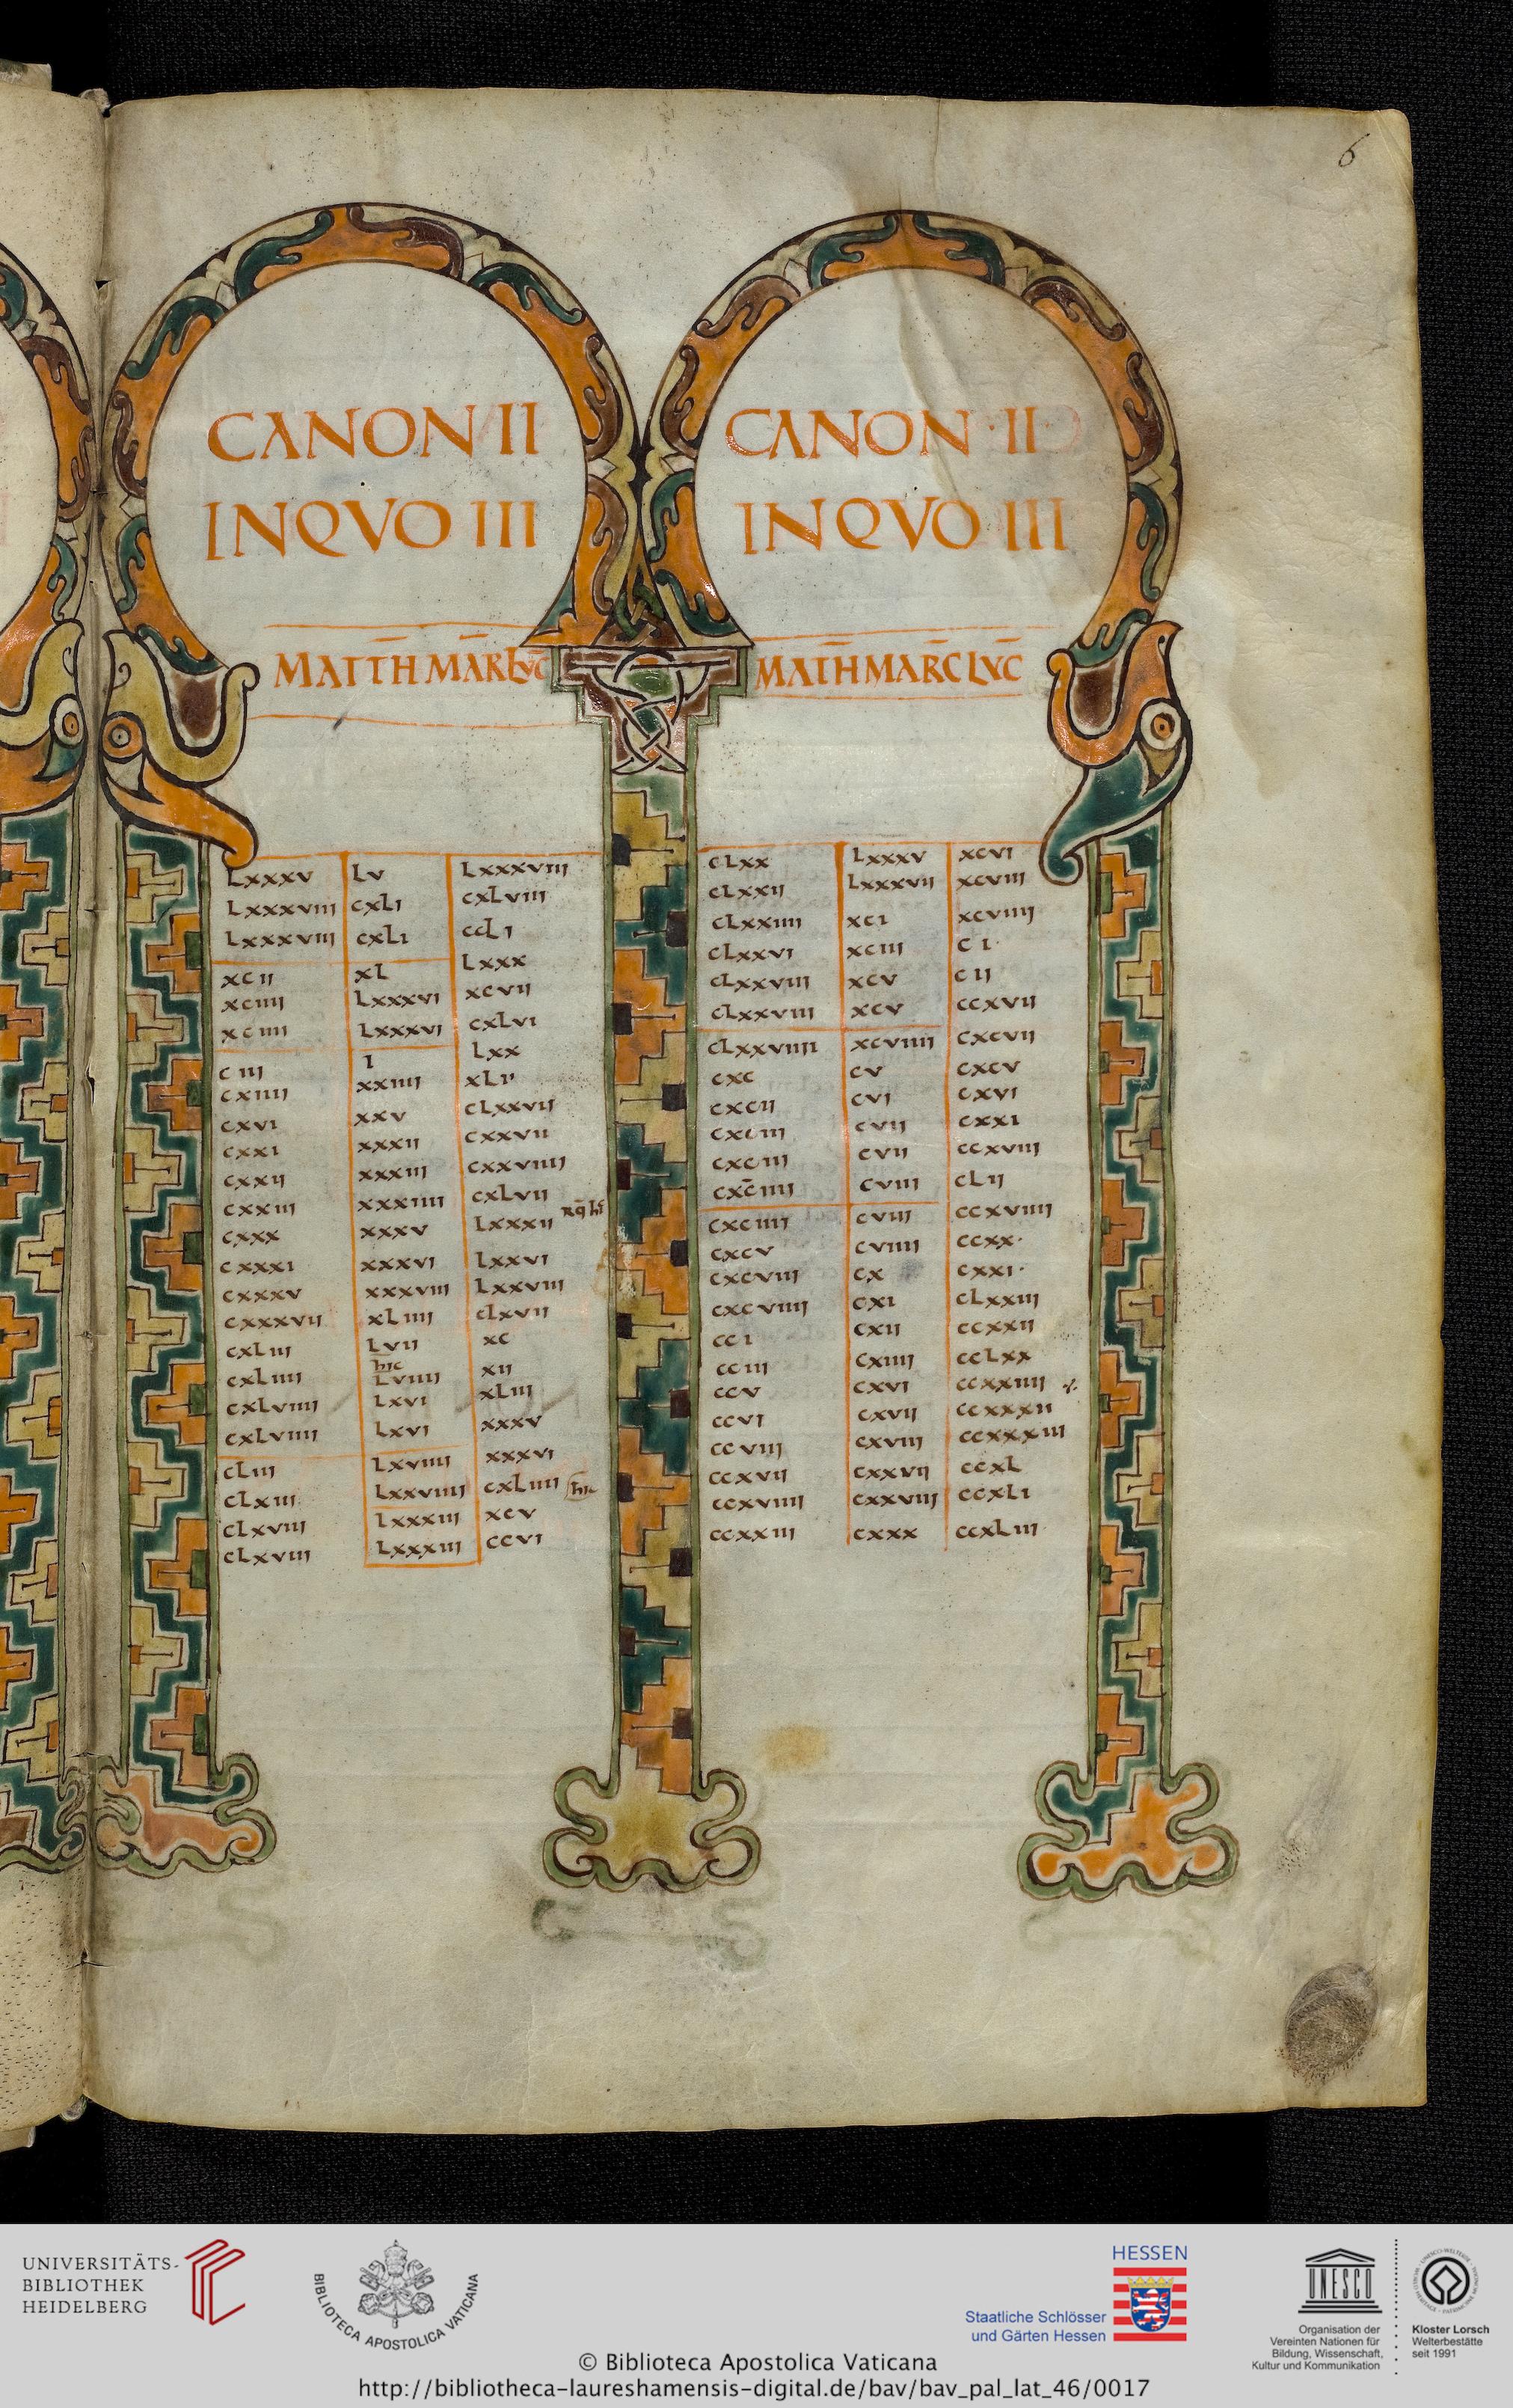 6
CANON II
INQVO III
MATTH MAR LVC
LXXXV LV LXXXVIII
LXXXVIII CXLI CXLVIII
LXXXVIII CXLI CCLI
XCII XL LXXX
XCIIII LXXXVI XCVII
XCIIII LXXXVI CXLVI
CIII I LXX
CXIIII XXIIII XLII
CXVI XXV CLXXVII
CXXI XXXII CXXVII
CXXII XXXIII CXXVIIII
CXXIII XXXIIII CXLVII
CXXX XXXV LXXXII
CXXXI XXXVI LXXVI
CXXXV XXXVIII LXXVIII
CXXXVII XLIIII CLXVII
CXLIII LVII XC
hic
CXLIIII LVIIII XII
CXLVIIII LXVI XLIII
CXLVIIII LXVI XXXV
CLIII LXVIIII XXXVI
CLXIII LXXVIIII CXLIIII hic
CLXVIII LXXXIII XCV
CLXVIII LXXXIII CCVI
CANON II
INQVO III
MATHMARCLVC
CLXX LXXXV XCVI
CLXXII LXXXVII XCVIII
CLXXIIII XCI XCVIIII
CLXXVI XCIII CI
CLXXVIII XCV CII
CLXXVIII XCV CCXVII
CLXXVIIII XCVIIII CXCVII
CXC CV CXCV
CXCII CVI CXVI
CXCIII CVII CXXI
CXCIII CVII CCXVIII
CXCIIII CVIII CLII
CXCIIII CVIII CCXVIIII
CXCV CVIIII CCXX
CXCVIII CX CXXI
CXCVIIII CXI CLXXIII
CCI CXII CCXXII
CCIII CXIIII CCLXX
CCV CXVI CCXXIIII
CCVI CXVII CCXXXII
CCVIII CXVIII CCXXXIII
CCXVII CXXVII CCXL
CCXVIIII CXXVIII CCXLI
CCXXIII CXXX CCXLIII
UNIVERSITÄTS-
BIBLIOTHEK
HEIDELBERG
BIBLIOTECA APOSTOLICA VATICANA
HESSEN
Staatliche Schlösser
und Gärten Hessen
UNESCO
Organisation der
Vereinten Nationen für
Bildung, Wissenschaft,
Kultur und Kommunikation
Kloster Lorsch
Welterbestätte
seit 1991
© Biblioteca Apostolica Vaticana
http://bibliotheca-laureshamensis-digital.de/bav/bav_pal_lat_46/0017